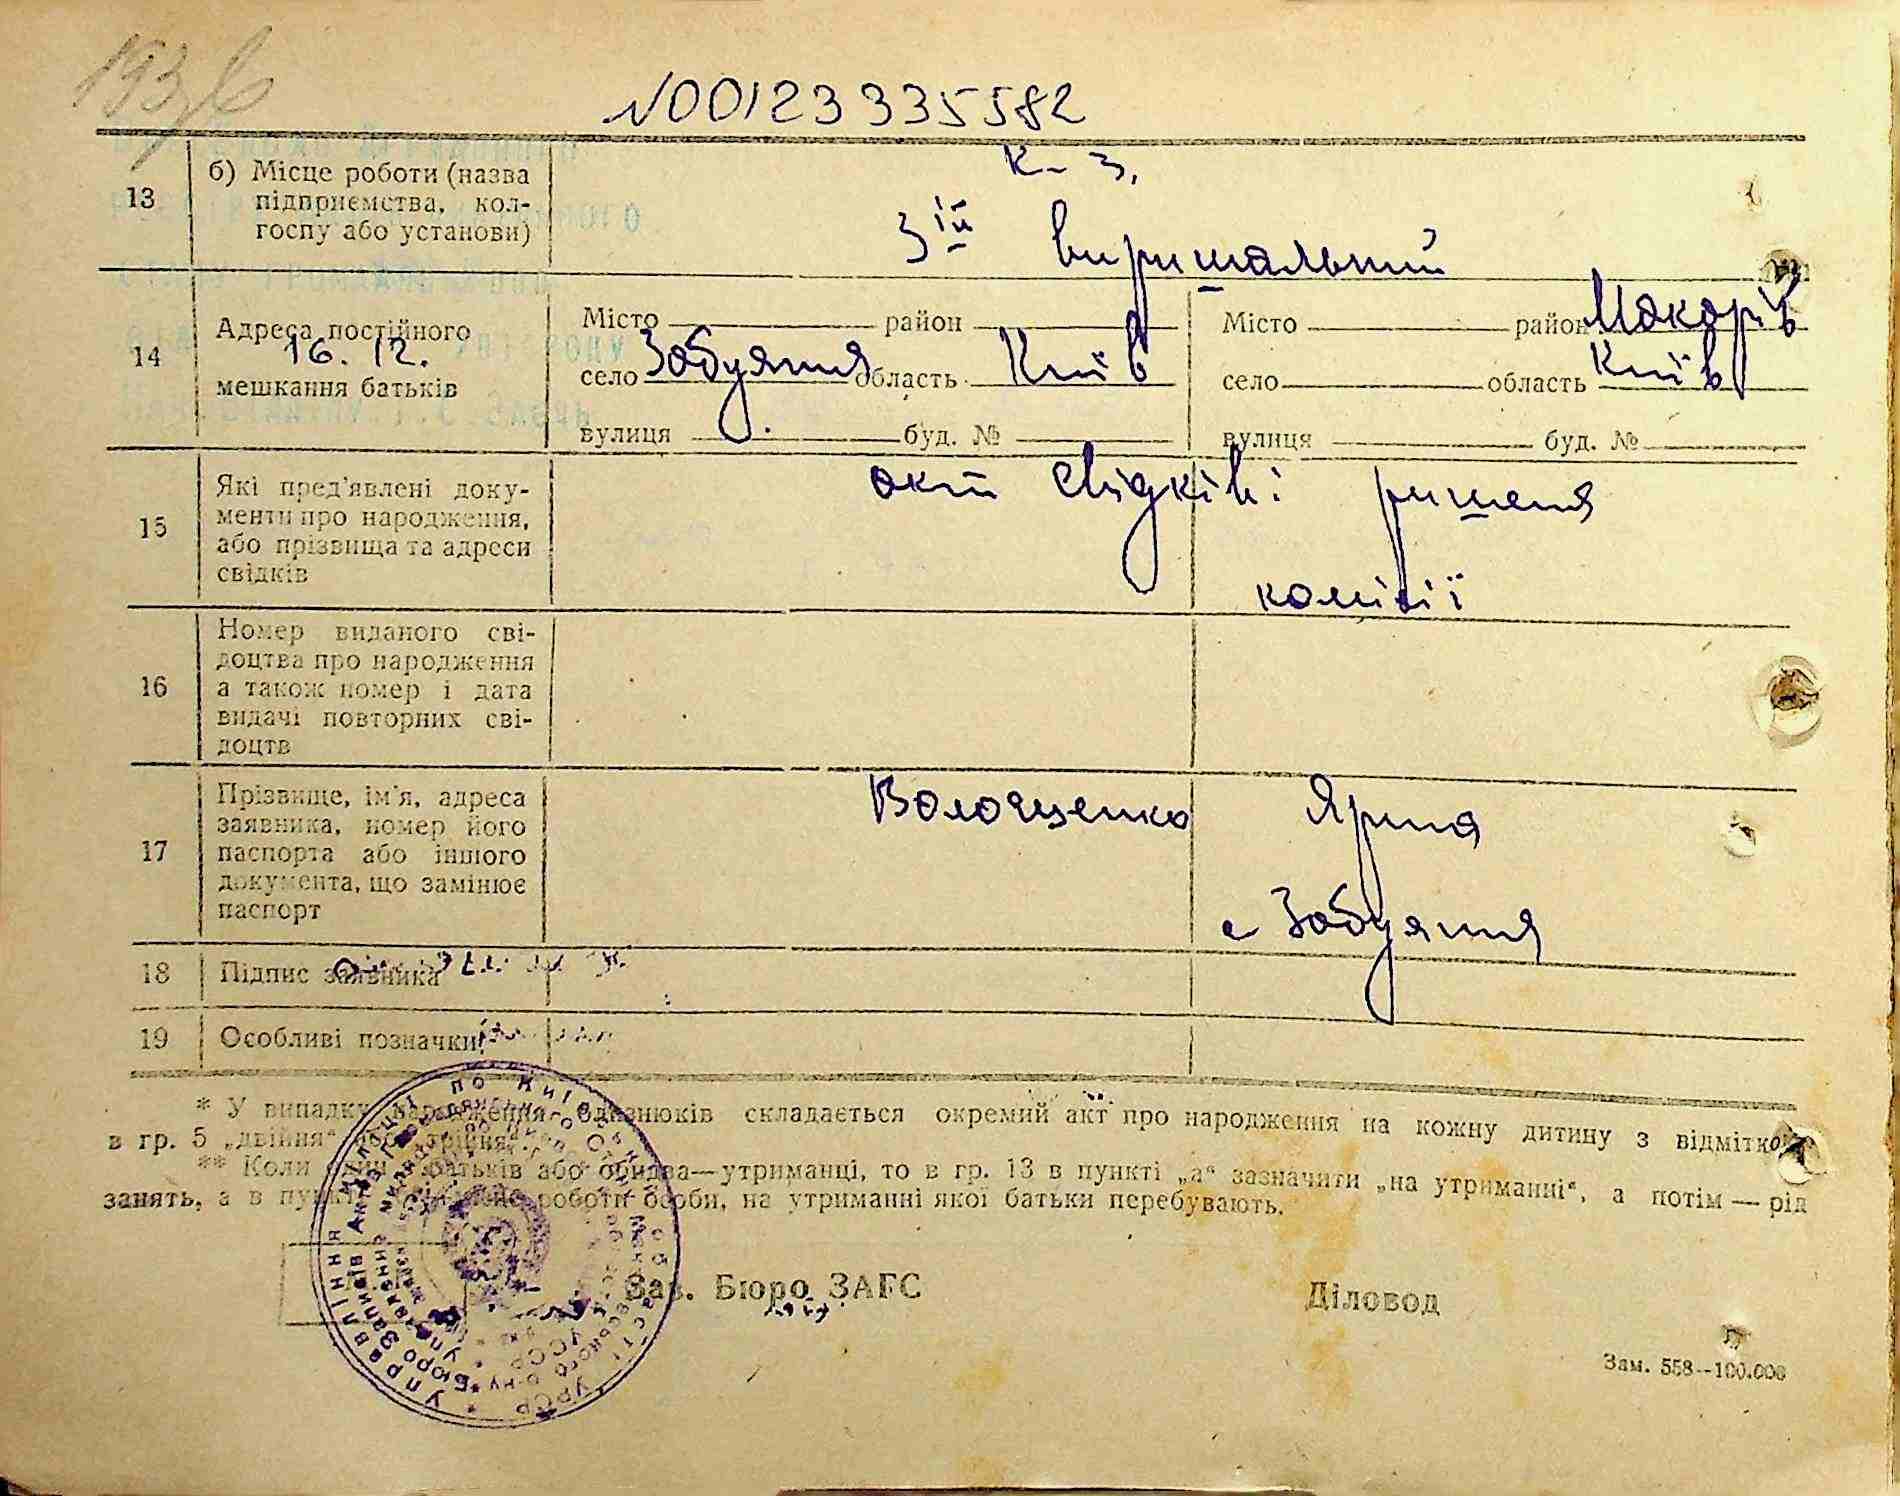 N00123335582
К-з.
13
б) Місце роботи (назва
підприємства, кол-
госпу або установи)
3ій вирішальний
14
Адреса постійного
16. 12.
мешкання батьків
Місто район
село Забуяння область Київ
вулиця буд. №
Місто район Макорів
село область Київ
вулиця буд. №
15
Які пред'явлені доку-
менти про народження,
або прізвища та адреси
свідків
акт свідків і ришеня
комісії
16
Номер виданого сві-
доцтва про народження
а також номер і дата
видачі повторних сві-
доцтв
17
Прізвище, ім'я, адреса
заявника, номер його
паспорта або іншого
документа, що замінює
паспорт
Ярина
с Забуяння
18
Підпис заявника
19
Особливі позначки
* У випадку народження близнюків складається окремий акт про народження на кожну дитину з відміткою
в гр. 5 „двійня“ або „трійня“.
** Коли один з батьків або обидва—утриманці, то в гр. 13 в пункті „а“ зазначити „на утриманні“, а потім — рід
занять, а в пункті роботи особи, на утриманні якої батьки перебувають.
Зав. Бюро ЗАГС
Діловод
Зам. 558—100.000